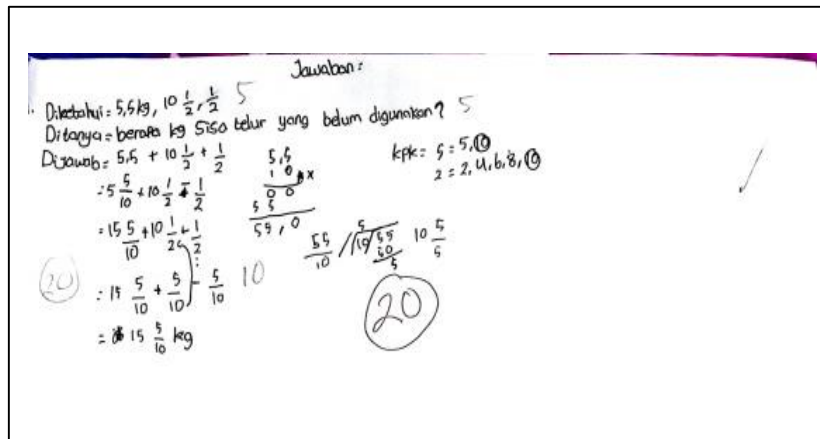 Jawaban :
Diketahui : 5,5 kg, 10 1/2, 1/2 5
Ditanya = berapa kg sisa telur yang belum digunakan? 5
Dijawab = 5,5 + 10 1/2 + 1/2
= 5 5/10 + 10 1/2 - 1/2
= 15 5/10 + 10 1/2 - 1/2
= 15 5/10 + 5/10 - 5/10 10
= 15 5/10 kg
20
5,5
10 x
00
55
55,0
kpk = 5 = 5, 10
2 = 2, 4, 6, 8, 10
55/10 / 10 55 5
50
5
10 5/5
20